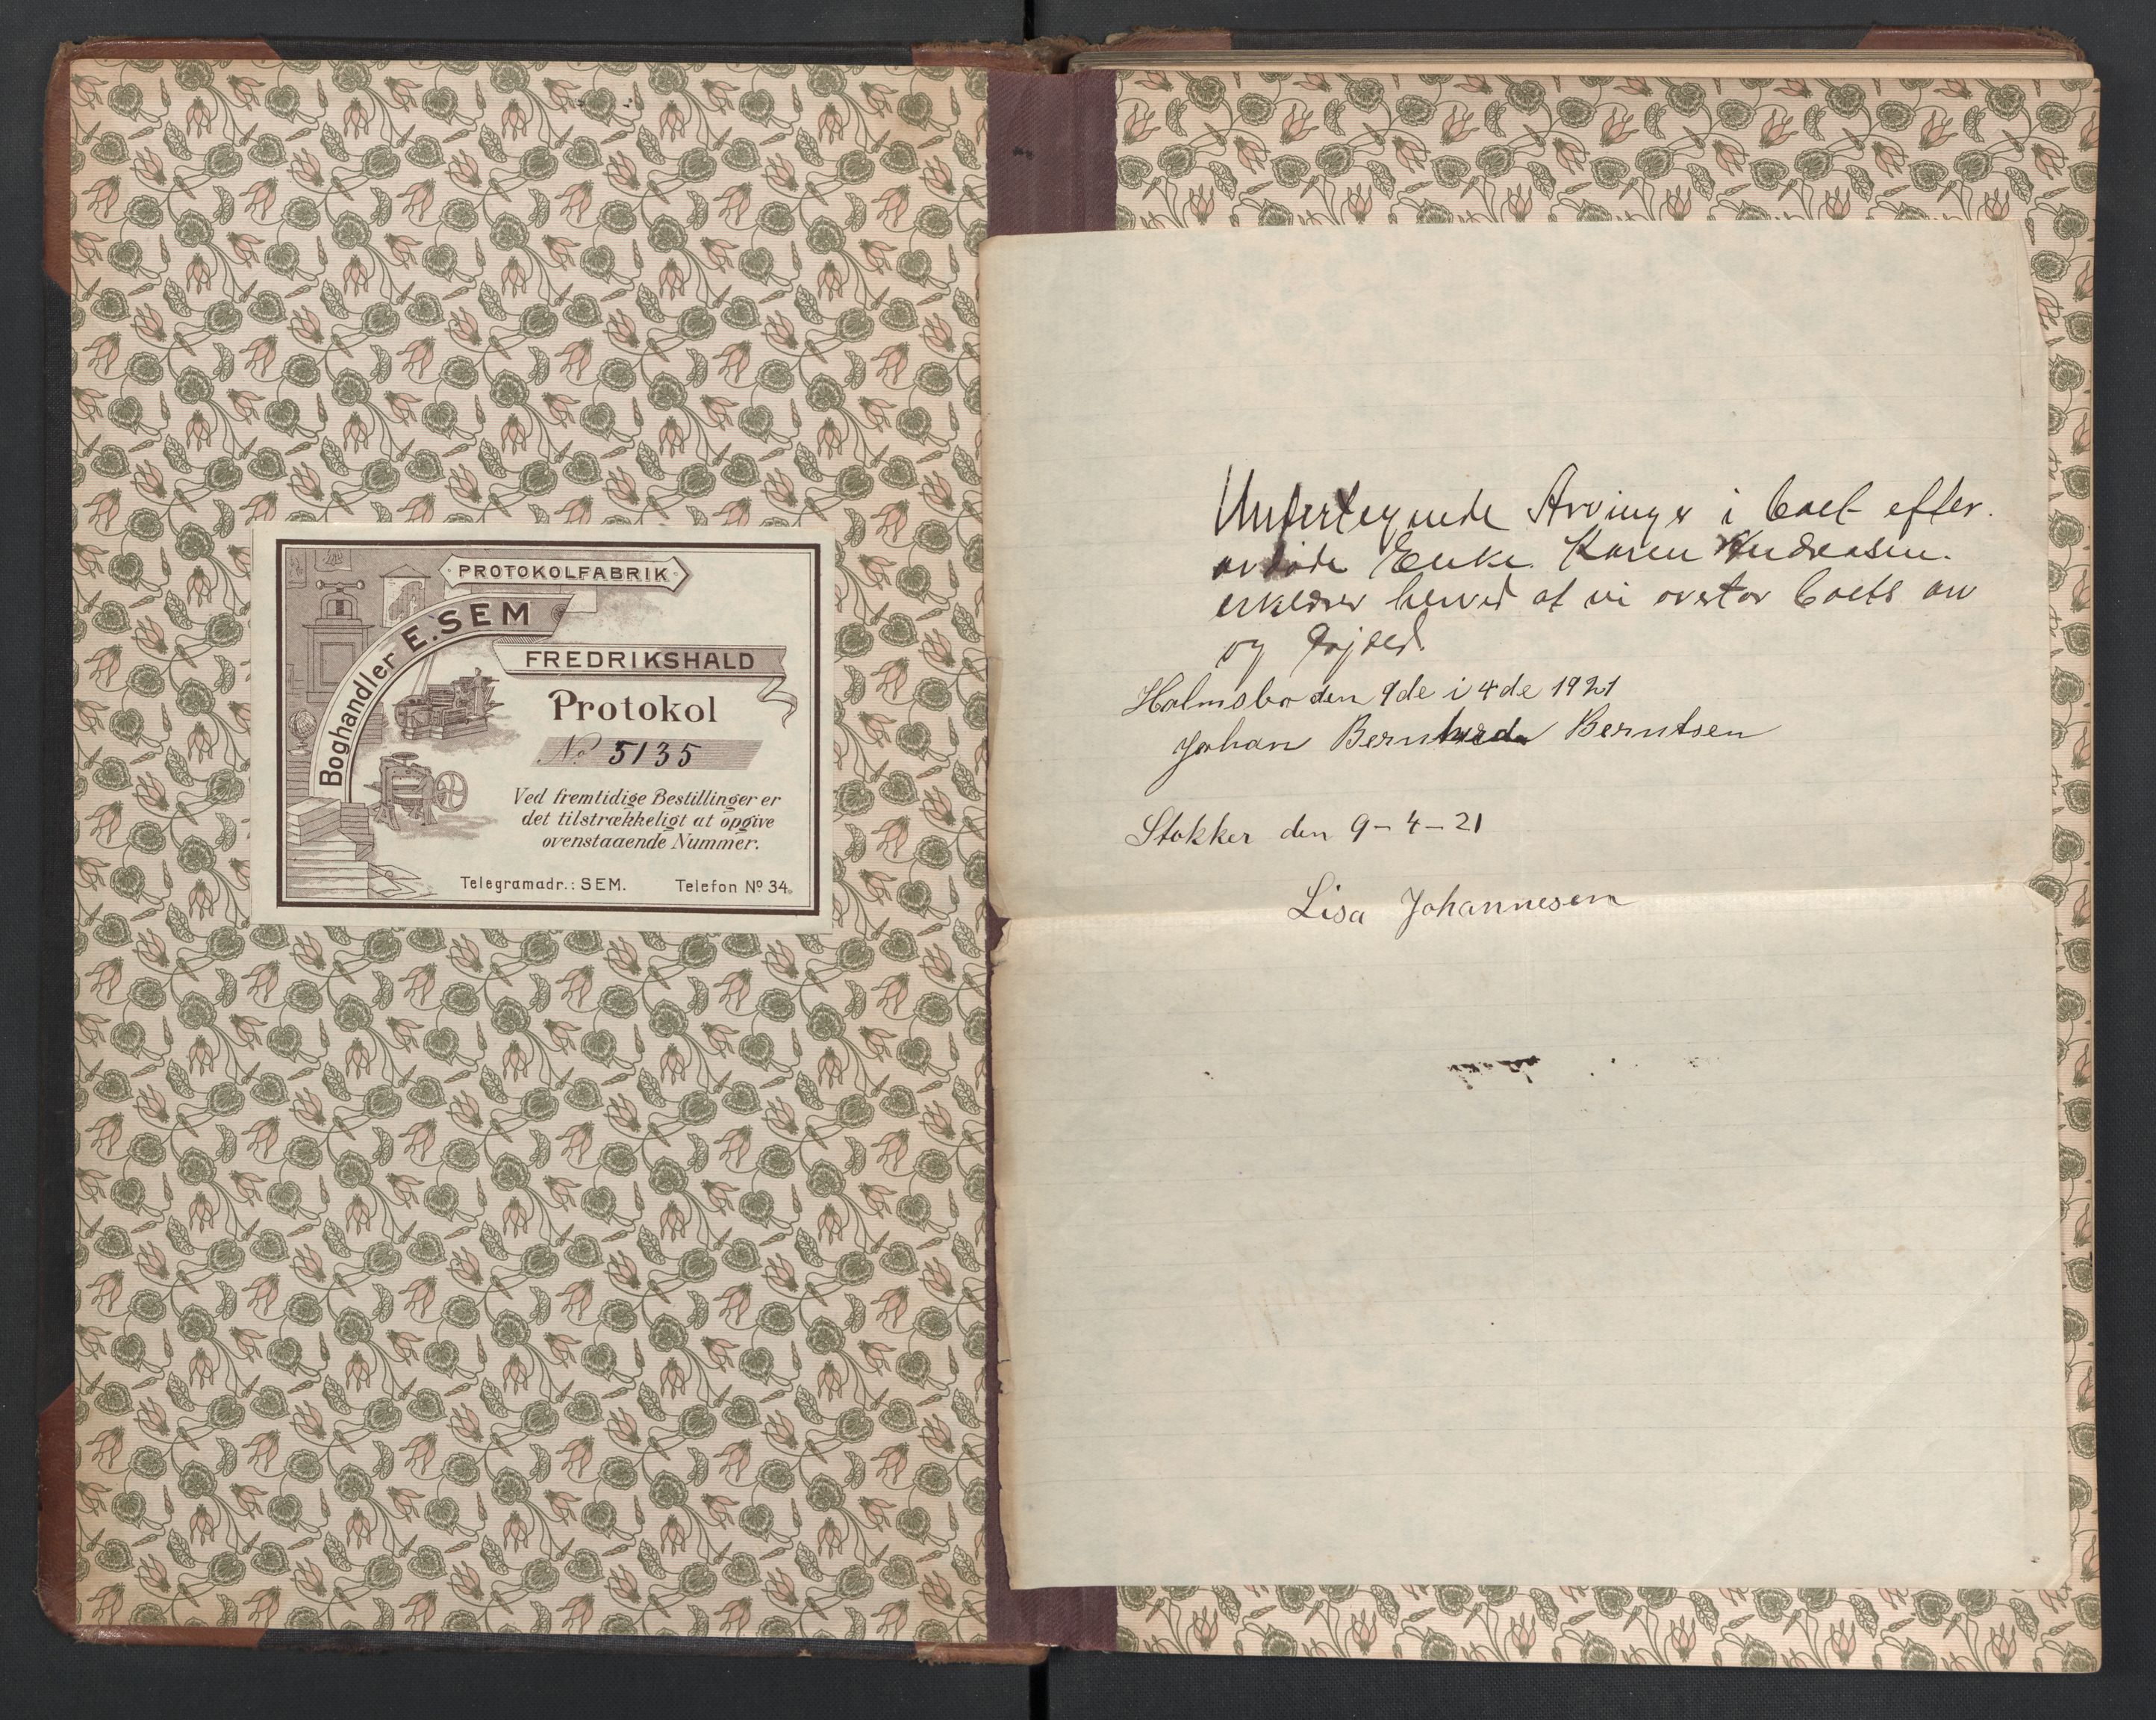 PROTOKOLFABRIK
Boghandler E. SEM
FREDRIKSHALD
Protokol
No 5135
Ved fremtidige Bestillinger er
det tilstrækkeligt at opgive
ovenstaaende Nummer.
Telegramadr.: SEM. Telefon No. 34.
Undertegnede Arvinger i boet efter
avdøde Enke Karen Andreasen.
erklærer herved at vi overtar boets arv
og Gjæld.
Holmsbo den 9de i 4de 1921
Johan Bernhard Berntsen
Stokker den 9-4-21
Lisa Johannesen